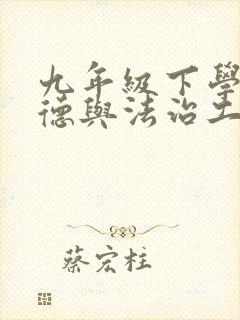 九年級下學
德與法治土
蔡宏柱